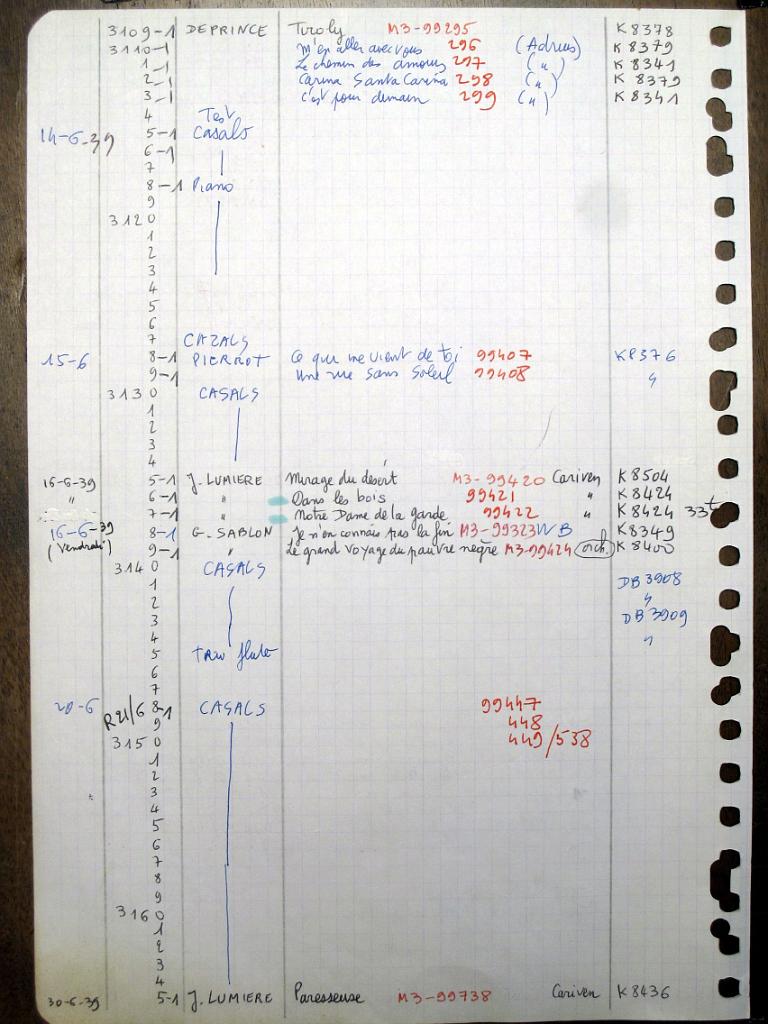 3109-1 DEPRINCE Tiroly M3-99295 K8378
3110-1 m'en aller avec vous 296 (Adrus) K8379
1-1 Le chemin des amours 297 (") K8341
2-1 Carina Santa Carina 298 (") K8379
3-1 c'est pour demain 299 (") K8341
4 Test
14-6-39 5-1 Casals
6-1
7
8-1 Piano
9
3120
1
2
3
4
5
6
7 CAZALS
15-6 8-1 PIERROT Ce que me vient de toi 99407 K8376
9-1 Une rue sans Soleil 99408 "
3130 CASALS
1
2
3
4
16-6-39 5-1 J. LUMIERE Mirage du désert M3-99420 Cariven K8504
" 6-1 " Dans les bois 99421 " K8424
7-1 " Notre Dame de la garde 99422 " K8424 33t
16-6-39 8-1 G. SABLON Je n'en connais pas la fin M3-99323 WB K8349
(Vendredi) 9-1 " Le grand voyage du pauvre negre M3-99424 (orch.) K8400
3140 CASALS
1 DB 3908
2 "
3 DB 3909
4 "
5 trio flute
6
7
20-6 R21/6 8-1 CASALS 99447
9 448
3150 449/538
1
2
3
4
5
6
7
8
9
3160
1
2
3
4
30-6-39 5-1 J. LUMIERE Paresseuse M3-99738 Cariven K8436